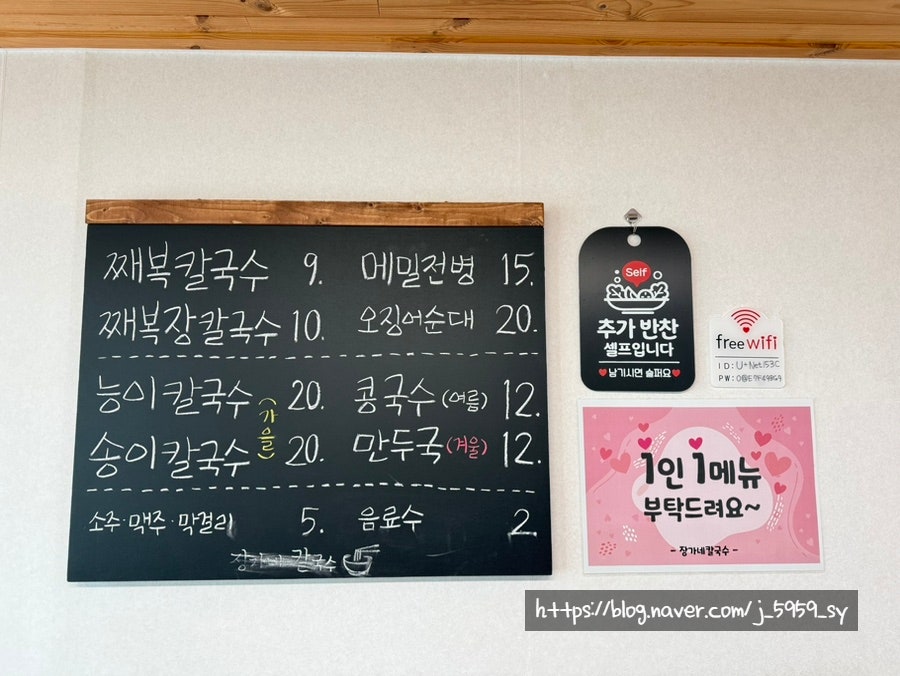 째복칼국수 9. 메밀전병 15.
째복장칼국수 10. 오징어순대 20.
능이칼국수 20. 콩국수 (여름) 12.
(가을)
송이칼국수 20. 만두국 (겨울) 12.
소주·맥주·막걸리 5. 음료수 2.
장가네 칼국수
Self
추가 반찬
셀프입니다
남기시면 슬퍼요
free wifi
ID: U+Net153C
PW:
1인 1메뉴
부탁드려요~
- 장가네칼국수 -
https://blog.naver.com/j_5959_sy